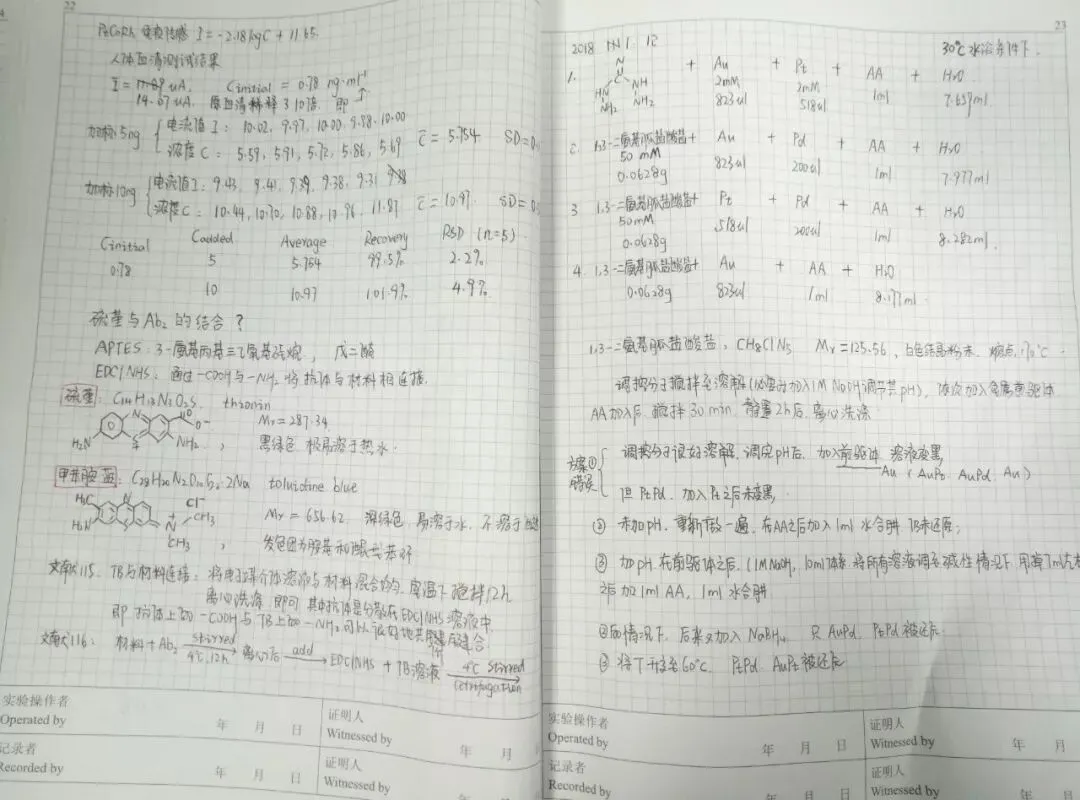 22
PtCoRh 免疫传感 I = -2.18logC + 11.65.
人体血清测试结果
I = uA, Cinitial = 0.78 ng·ml⁻¹
14.07uA. 原血清稀释310倍. 即
加标5ng 电流值 I: 10.02, 9.97, 10.00, 9.88, 10.00
浓度 C = 5.59, 5.91, 5.72, 5.86, 5.69 c̄ = 5.754 SD=0.
加标10ng 电流值I: 9.43, 9.41, 9.39, 9.38, 9.31
浓度C: 10.44, 10.70, 10.88, 10.96, 11.87 c̄ = 10.97. SD=0.
Cinitial Cadded Average Recovery RSD (n=5).
0.78 5 5.754 99.5% 2.2%
10 10.97 101.9% 4.9%
硫堇与Ab₂的结合?
APTES: 3-氨基丙基三乙氧基硅烷, 戊二醛
EDC/NHS: 通过-COOH与-NH₂将抗体与材料相连接.
硫堇: C₁₄H₁₃N₃O₂S. thionin
Mr = 287.34
H₂N S N NH₂ O O⁻, 黑绿色. 极易溶于热水.
甲苯胺蓝: C₂₈H₂₀N₂O₁₀S₂·2Na toluidine blue
H₃C N Cl⁻ Mr = 656.62. 深绿色. 易溶于水, 不溶于
H₂N S N CH₃ CH₃, 发色团为
文献115. TB与材料连接: 将电子媒介体溶液与材料混合均匀. 室温下搅拌12h
离心洗涤, 即可. 其中抗体是分散在EDC/NHS溶液中.
即抗体上的-COOH与TB上的-NH₂可以很好地共价键合
文献116: 材料+Ab₂ stirred 4℃, 12h 离心后 add EDC/NHS + TB溶液 4℃ stirred cetrifugation
实验操作者
Operated by 年 月 日
证明人
Witnessed by 年 月
记录者
Recorded by 年 月 日
证明人
Witnessed by 年 月
23
2018 1. 12 30℃水浴条件下.
1. C NH HN NH NH₂ NH₂ + Au + Pt + AA + H₂O
2mM 2mM 1ml 7.659ml
823ul 518ul
2. 1,3-二氨基胍盐酸盐+ Au + Pd + AA + H₂O
50 mM 823ul 200ul 1ml 7.977ml
0.0628g
3 1,3-二氨基胍盐酸盐+ Pt + Pd + AA + H₂O
50mM 518ul 200ul 1ml 8.282ml.
0.0628g
4. 1,3-二氨基胍盐酸盐+ Au + AA + H₂O
0.0628g 823ul 1ml 8.177ml.
1,3-二氨基胍盐酸盐, CH₈ClN₅ Mr = 125.56, 白色结晶粉末. 熔点
调控分子搅拌至溶解(必要时加入1M NaOH调节其pH), 依次加入金属前驱体
AA加入后, 搅拌30min, 静置2h后. 离心洗涤
方案① 错误 调控分子很好溶解. 调完pH后, 加入前驱体 溶液变黑
Au (AuPt. AuPd. Au)
但PtPd. 加入Pt之后未变黑.
② 未加pH. 重新做一遍. 在AA之后加入1ml水合肼 TB未还原;
③ 加pH. 在前驱体之后. (1M NaOH, 10ml体系. 将所有溶液调至碱性情况下. 用掉7ml左右
之后加1ml AA, 1ml水合肼
②的情况下, 后来又加入NaBH₄. 只AuPd. PtPd被还原.
③ 将T升高至60℃. PtPd. AuPt被还原
实验操作者
Operated by 年 月 日
证明人
Witnessed by 年 月
记录者
Recorded by 年 月 日
证明人
Witnessed by 年 月